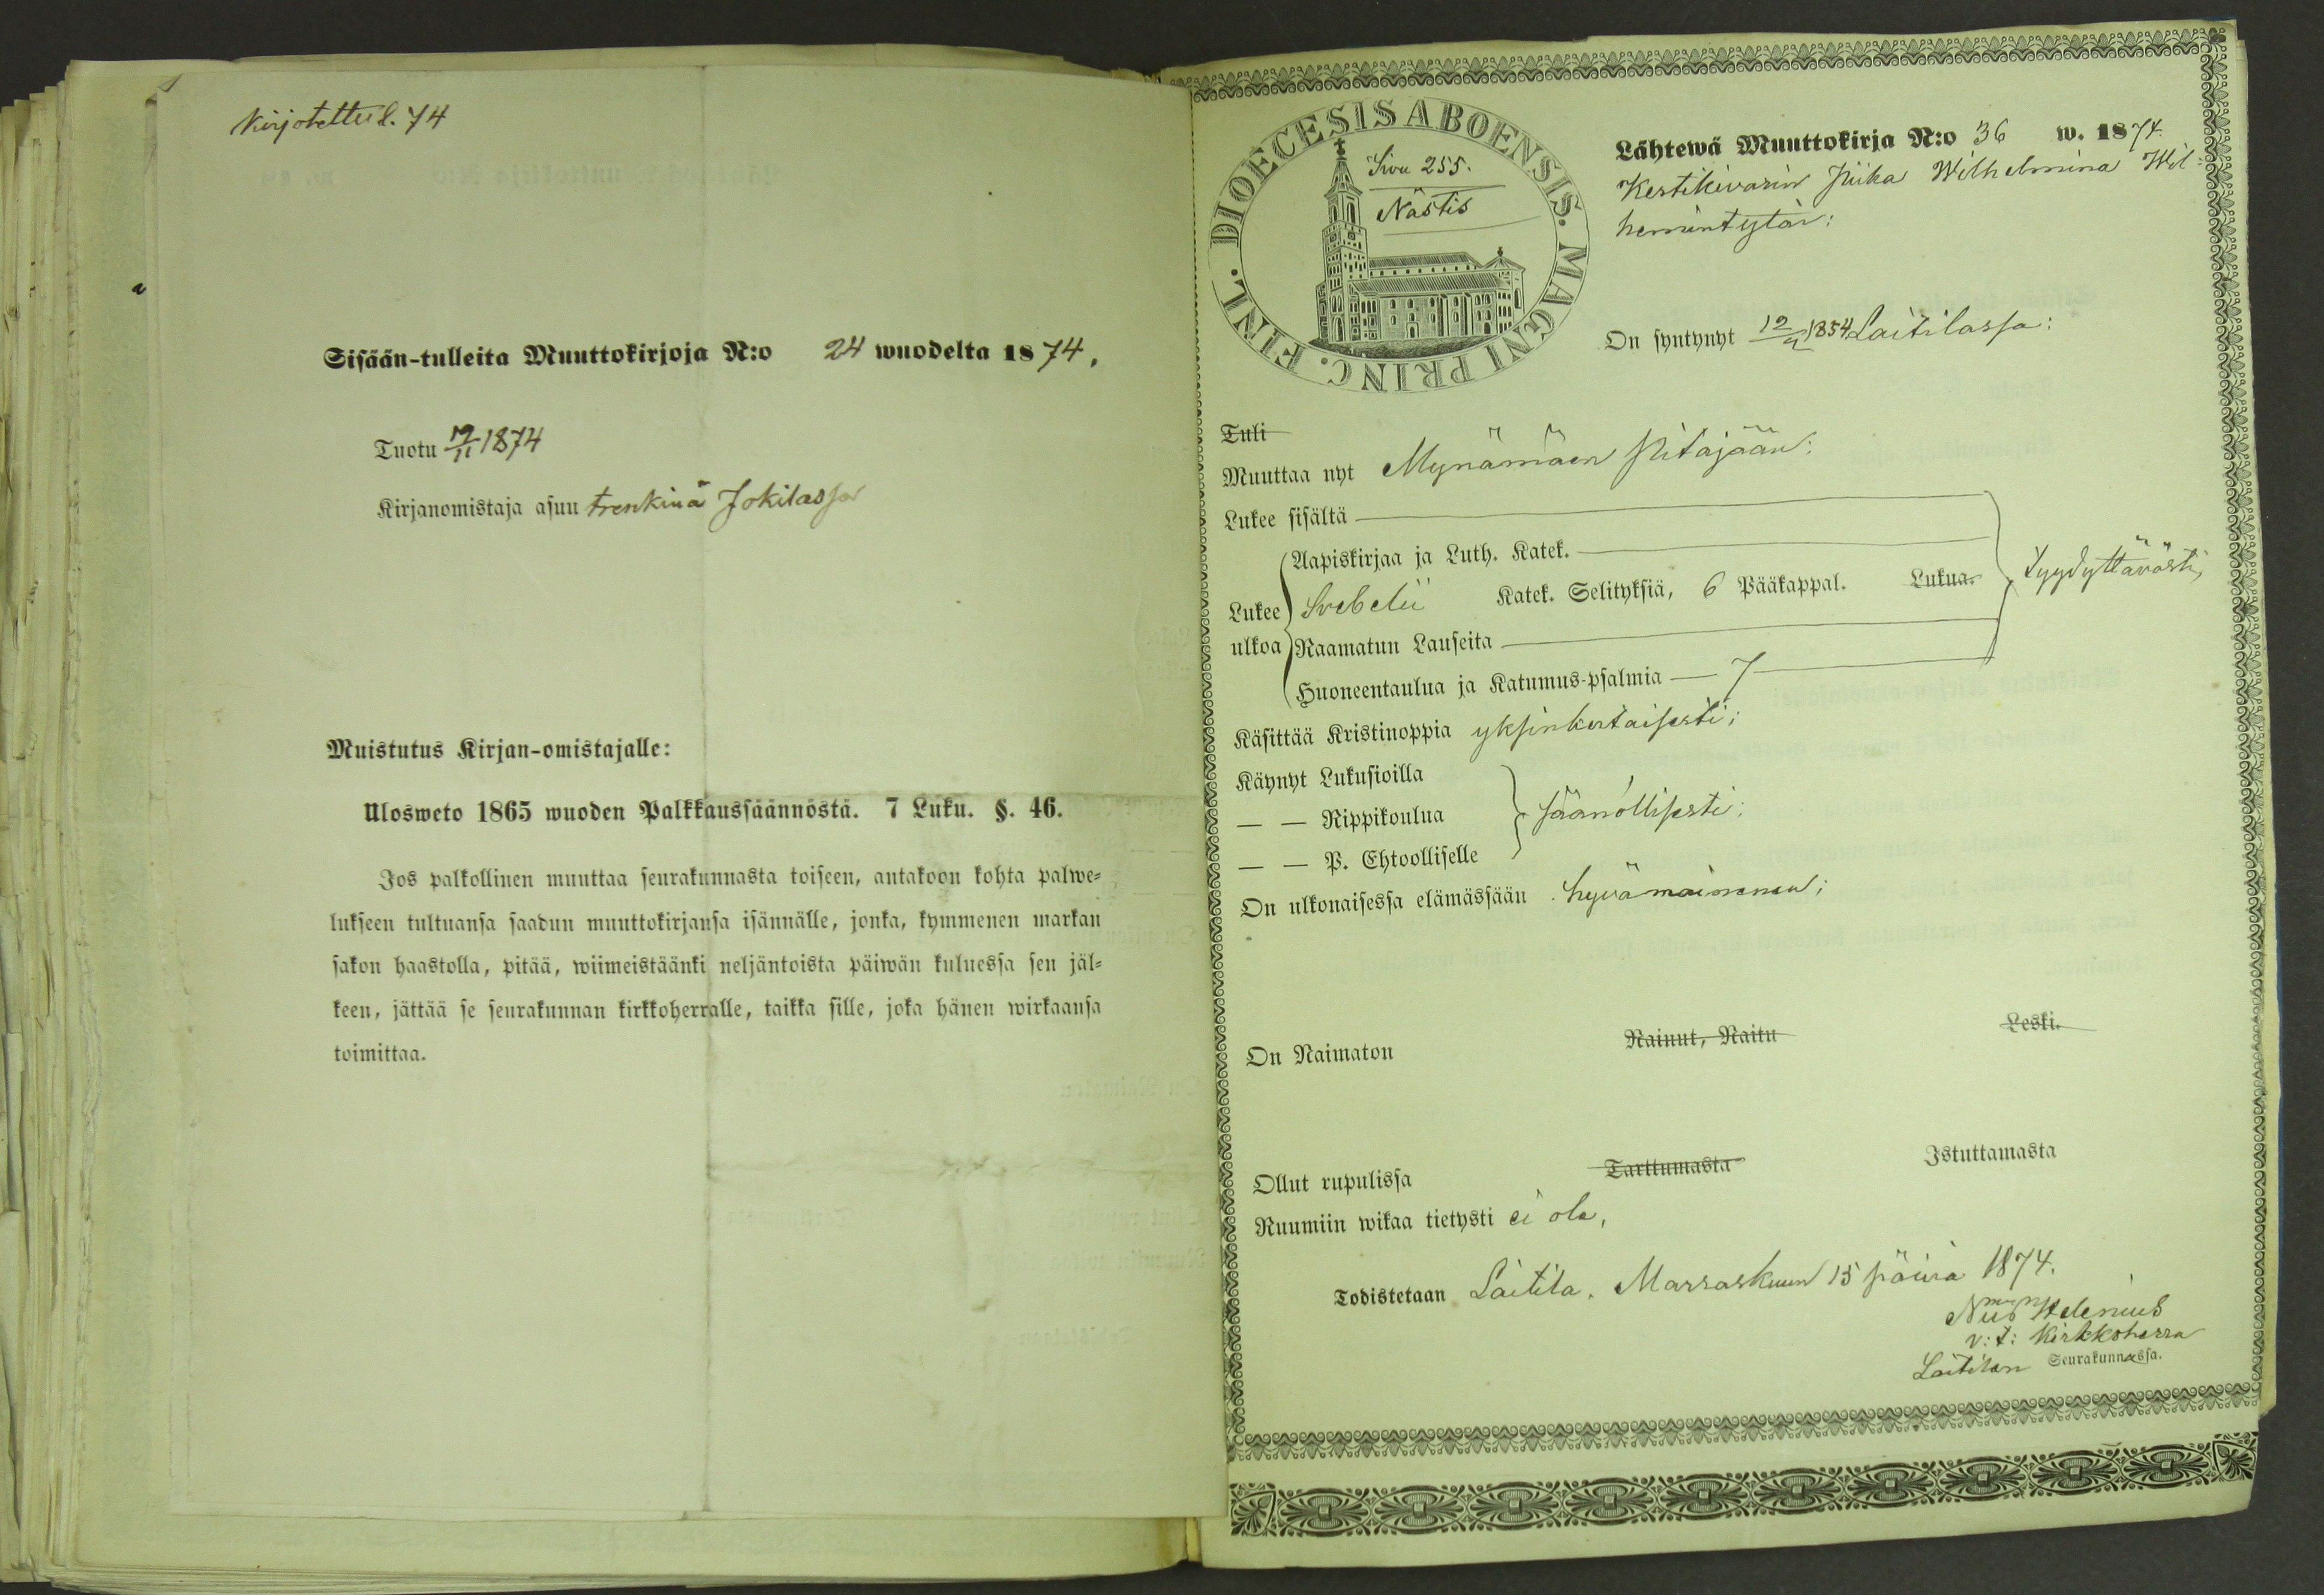 Kirjotettu S. 74
Sisään-tulleita Muuttokirjoja N:o 24 wuodelta 1874.
Tuotu 19/11 1874
Kirjanomistaja asuu trenkinä Jokilassa
Muistutus Kirjan-omistajalle:
Ulosweto 1865 wuoden Palkkaussäännöstä. 7 Luku. §. 46.
Jos palkollinen muuttaa seurakunnasta toiseen, antakoon kohta palwe-
lukseen tultuansa saadun muuttokirjansa isännälle, jonka, kymmenen markan
sakon haastolla, pitää, wiimeistäänki neljäntoista päiwän kuluessa sen jäl-
keen, jättää se seurakunnan kirkkoherralle, taikka sille, joka hänen wirkaansa
toimittaa.
FINL. DIOECESIS ABOENSIS. MAGNI PRINC.
Sivu 255.
Nästis
Lähtewä Muuttokirja N:o 36 w. 1874.
Kestikivarin Piika Wilhelmina Wil-
hemintytär:
On syntynyt 1854 Laitilassa:
Tuli
Muuttaa nyt Mynämäen Pitäjään:
Lukee sisältä
Aapiskirjaa ja Luth. Katek.
Lukee Svebelii Katek. Selityksiä, 6 Pääkappal. Lukua. tyydyttävästi,
ulkoa Raamatun Lauseita
Huoneentaulua ja Katumus-psalmia — 7 —
Käsittää Kristinoppia yksinkertaisesti;
Käynyt Lukusioilla
— — Rippikoulua säänöllisesti;
— — P. Ehtoolliselle
On ulkonaisessa elämässään hyvämaineinen;
On Naimaton Nainut, Naitu Leski.
Ollut rupulissa Tarttumasta Istuttamasta
Ruumiin wikaa tietysti ei ole,
Todistetaan Laitila, Marraskuun 15 päivä 1874.
Helenius
v: t: Kirkkoherra
Laitilan Seurakunnassa.